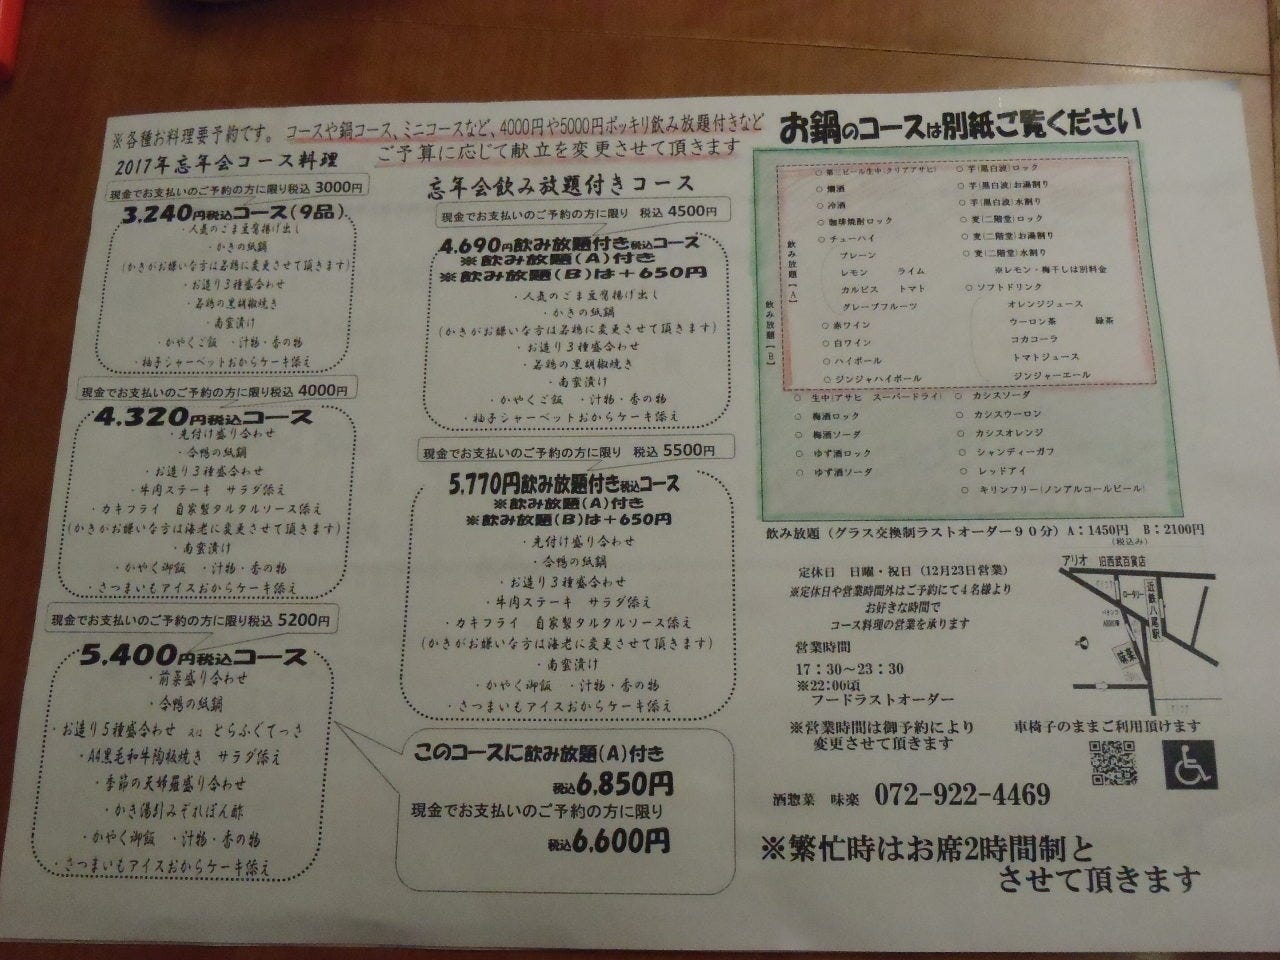 ※各種お料理要予約です。コースや鍋コース、ミニコースなど、4000円や5000円ポッキリ飲み放題付きなど
ご予算に応じて献立を変更させて頂きます
2017年忘年会コース料理
現金でお支払いのご予約の方に限り税込 3000円
3,240円税込コース(9品)
・人気のごま豆腐揚げ出し
・かきの紙鍋
(かきがお嫌いな方は若鶏に変更させて頂きます)
・お造り3種盛合わせ
・若鶏の黒胡椒焼き
・南蛮漬け
・かやくご飯 ・汁物・香の物
・柚子シャーベットおからケーキ添え
現金でお支払いのご予約の方に限り税込 4000円
4.320円税込コース
・先付け盛り合わせ
・合鴨の紙鍋
・お造り3種盛合わせ
・牛肉ステーキ サラダ添え
・カキフライ 自家製タルタルソース添え
(かきがお嫌いな方は海老に変更させて頂きます)
・南蛮漬け
・かやく御飯 ・汁物・香の物
・さつまいもアイスおからケーキ添え
現金でお支払いのご予約の方に限り税込 5200円
5.400円税込コース
・前菜盛り合わせ
・合鴨の紙鍋
・お造り5種盛合わせ 又は とらふぐてっさ
・A4黒毛和牛陶板焼き サラダ添え
・季節の天婦羅盛り合わせ
・かき湯引みぞれぽん酢
・かやく御飯 ・汁物・香の物
・さつまいもアイスおからケーキ添え
忘年会飲み放題付きコース
現金でお支払いのご予約の方に限り 税込 4500円
4.690円飲み放題付き税込コース
※飲み放題(A)付き
※飲み放題(B)は+650円
・人気のごま豆腐揚げ出し
・かきの紙鍋
(かきがお嫌いな方は若鶏に変更させて頂きます)
・お造り3種盛合わせ
・若鶏の黒胡椒焼き
・南蛮漬け
・かやくご飯 ・汁物・香の物
・柚子シャーベットおからケーキ添え
現金でお支払いのご予約の方に限り 税込 5500円
5.770円飲み放題付き税込コース
※飲み放題(A)付き
※飲み放題(B)は+650円
・先付け盛り合わせ
・合鴨の紙鍋
・お造り3種盛合わせ
・牛肉ステーキ サラダ添え
・カキフライ 自家製タルタルソース添え
(かきがお嫌いな方は海老に変更させて頂きます)
・南蛮漬け
・かやく御飯 ・汁物・香の物
・さつまいもアイスおからケーキ添え
このコースに飲み放題(A)付き
税込6,850円
現金でお支払いのご予約の方に限り
税込6,600円
お鍋のコースは別紙ご覧ください
飲み放題【A】
飲み放題【B】
○ 第三ビール生中(クリアアサヒ)
○ 燗酒
○ 冷酒
○ 珈琲焼酎ロック
○ チューハイ
プレーン
レモン ライム
カルピス トマト
グレープフルーツ
○ 赤ワイン
○ 白ワイン
○ ハイボール
○ ジンジャハイボール
○ 芋(黒白波)ロック
○ 芋(黒白波)お湯割り
○ 芋(黒白波)水割り
○ 麦(二階堂)ロック
○ 麦(二階堂)お湯割り
○ 麦(二階堂)水割り
※レモン・梅干しは別料金
○ ソフトドリンク
オレンジジュース
ウーロン茶 緑茶
コカコーラ
トマトジュース
ジンジャーエール
○ 生中(アサヒ スーパードライ)
○ 梅酒ロック
○ 梅酒ソーダ
○ ゆず酒ロック
○ ゆず酒ソーダ
○ カシスソーダ
○ カシスウーロン
○ カシスオレンジ
○ シャンディーガフ
○ レッドアイ
○ キリンフリー(ノンアルコールビール)
飲み放題(グラス交換制ラストオーダー90分)A:1450円 B:2100円
(税込み)
定休日 日曜・祝日(12月23日営業)
※定休日や営業時間外はご予約にて4名様より
お好きな時間で
コース料理の営業を承ります
営業時間
17:30〜23:30
※22:00頃
フードラストオーダー
※営業時間は御予約により
変更させて頂きます
アリオ 旧西武百貨店
ロータリー
近鉄八尾駅
味楽
車椅子のままご利用頂けます
酒惣菜 味楽 072-922-4469
※繁忙時はお席2時間制と
させて頂きます